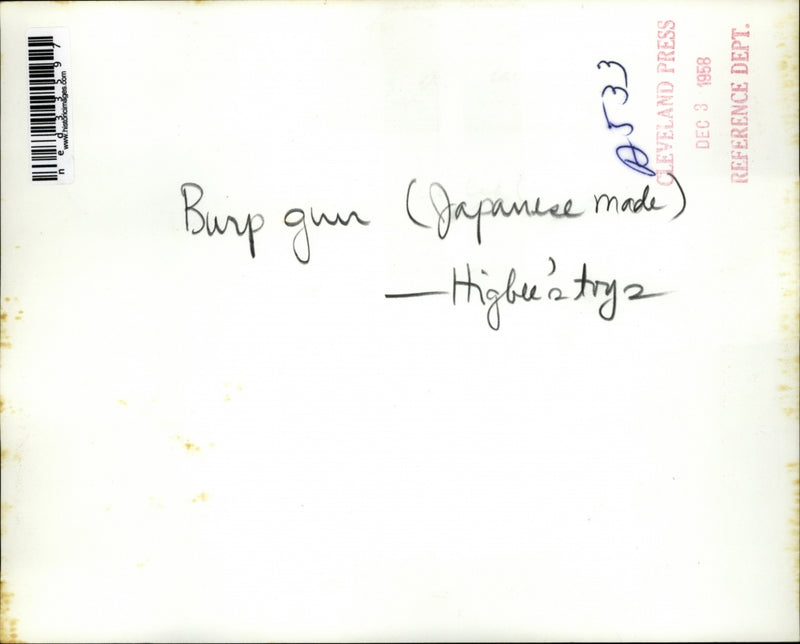 Burp gun (Japanese made)
— Higbee's toys
A533
CLEVELAND PRESS
DEC 3 1958
REFERENCE DEPT.
www.historicimages.com
ned33597